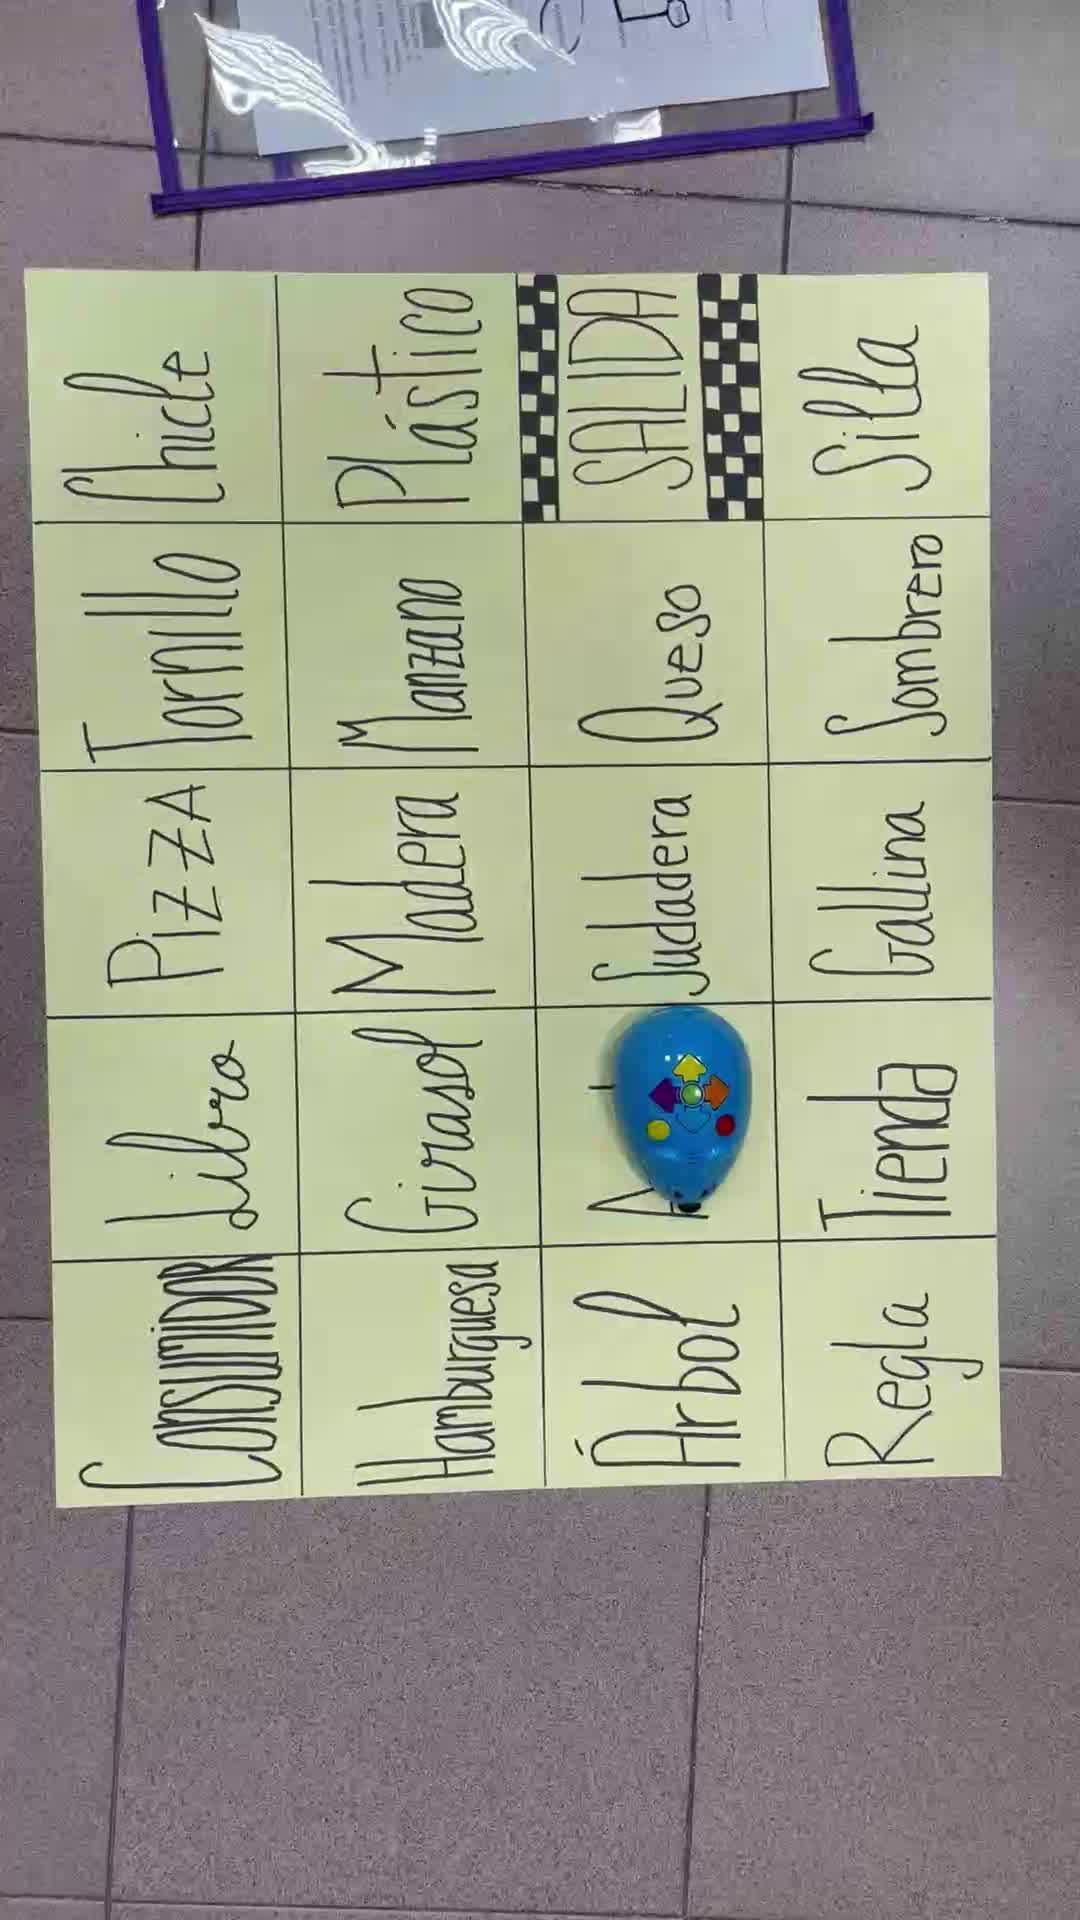 CONSUMIDOR
Libro
PiZZA
Tornillo
Chicle
Hamburguesa
Girasol
Madera
Manzano
Plástico
Árbol
Sudadera
Queso
SALIDA
Regla
Tienda
Gallina
Sombrero
Silla